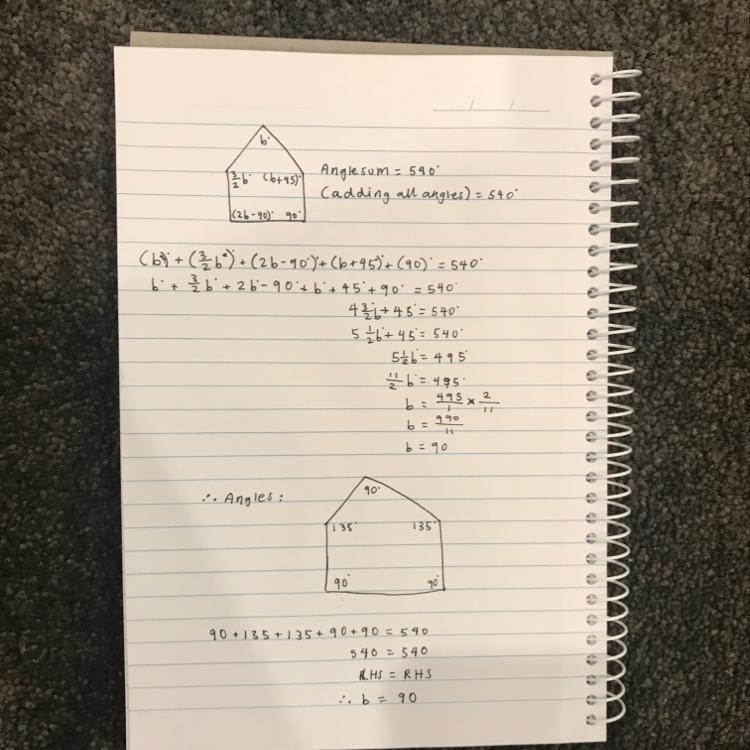 / /
b°
3/2 b° (b+45)°
(2b-90)° 90°
Angle sum = 540°
(adding all angles) = 540°
(b)° + (3/2 b°) + (2b-90°)° + (b+45)° + (90)° = 540°
b° + 3/2 b° + 2b° - 90° + b° + 45° + 90° = 540°
4 3/2 b° + 45° = 540°
5 1/2 b° + 45° = 540°
5 1/2 b° = 495°
11/2 b° = 495°
b = 495/1 × 2/11
b = 990/11
b = 90
∴ Angles:
90°
135° 135°
90° 90°
90 + 135 + 135 + 90 + 90 = 540
540 = 540
LHS = RHS
∴ b = 90